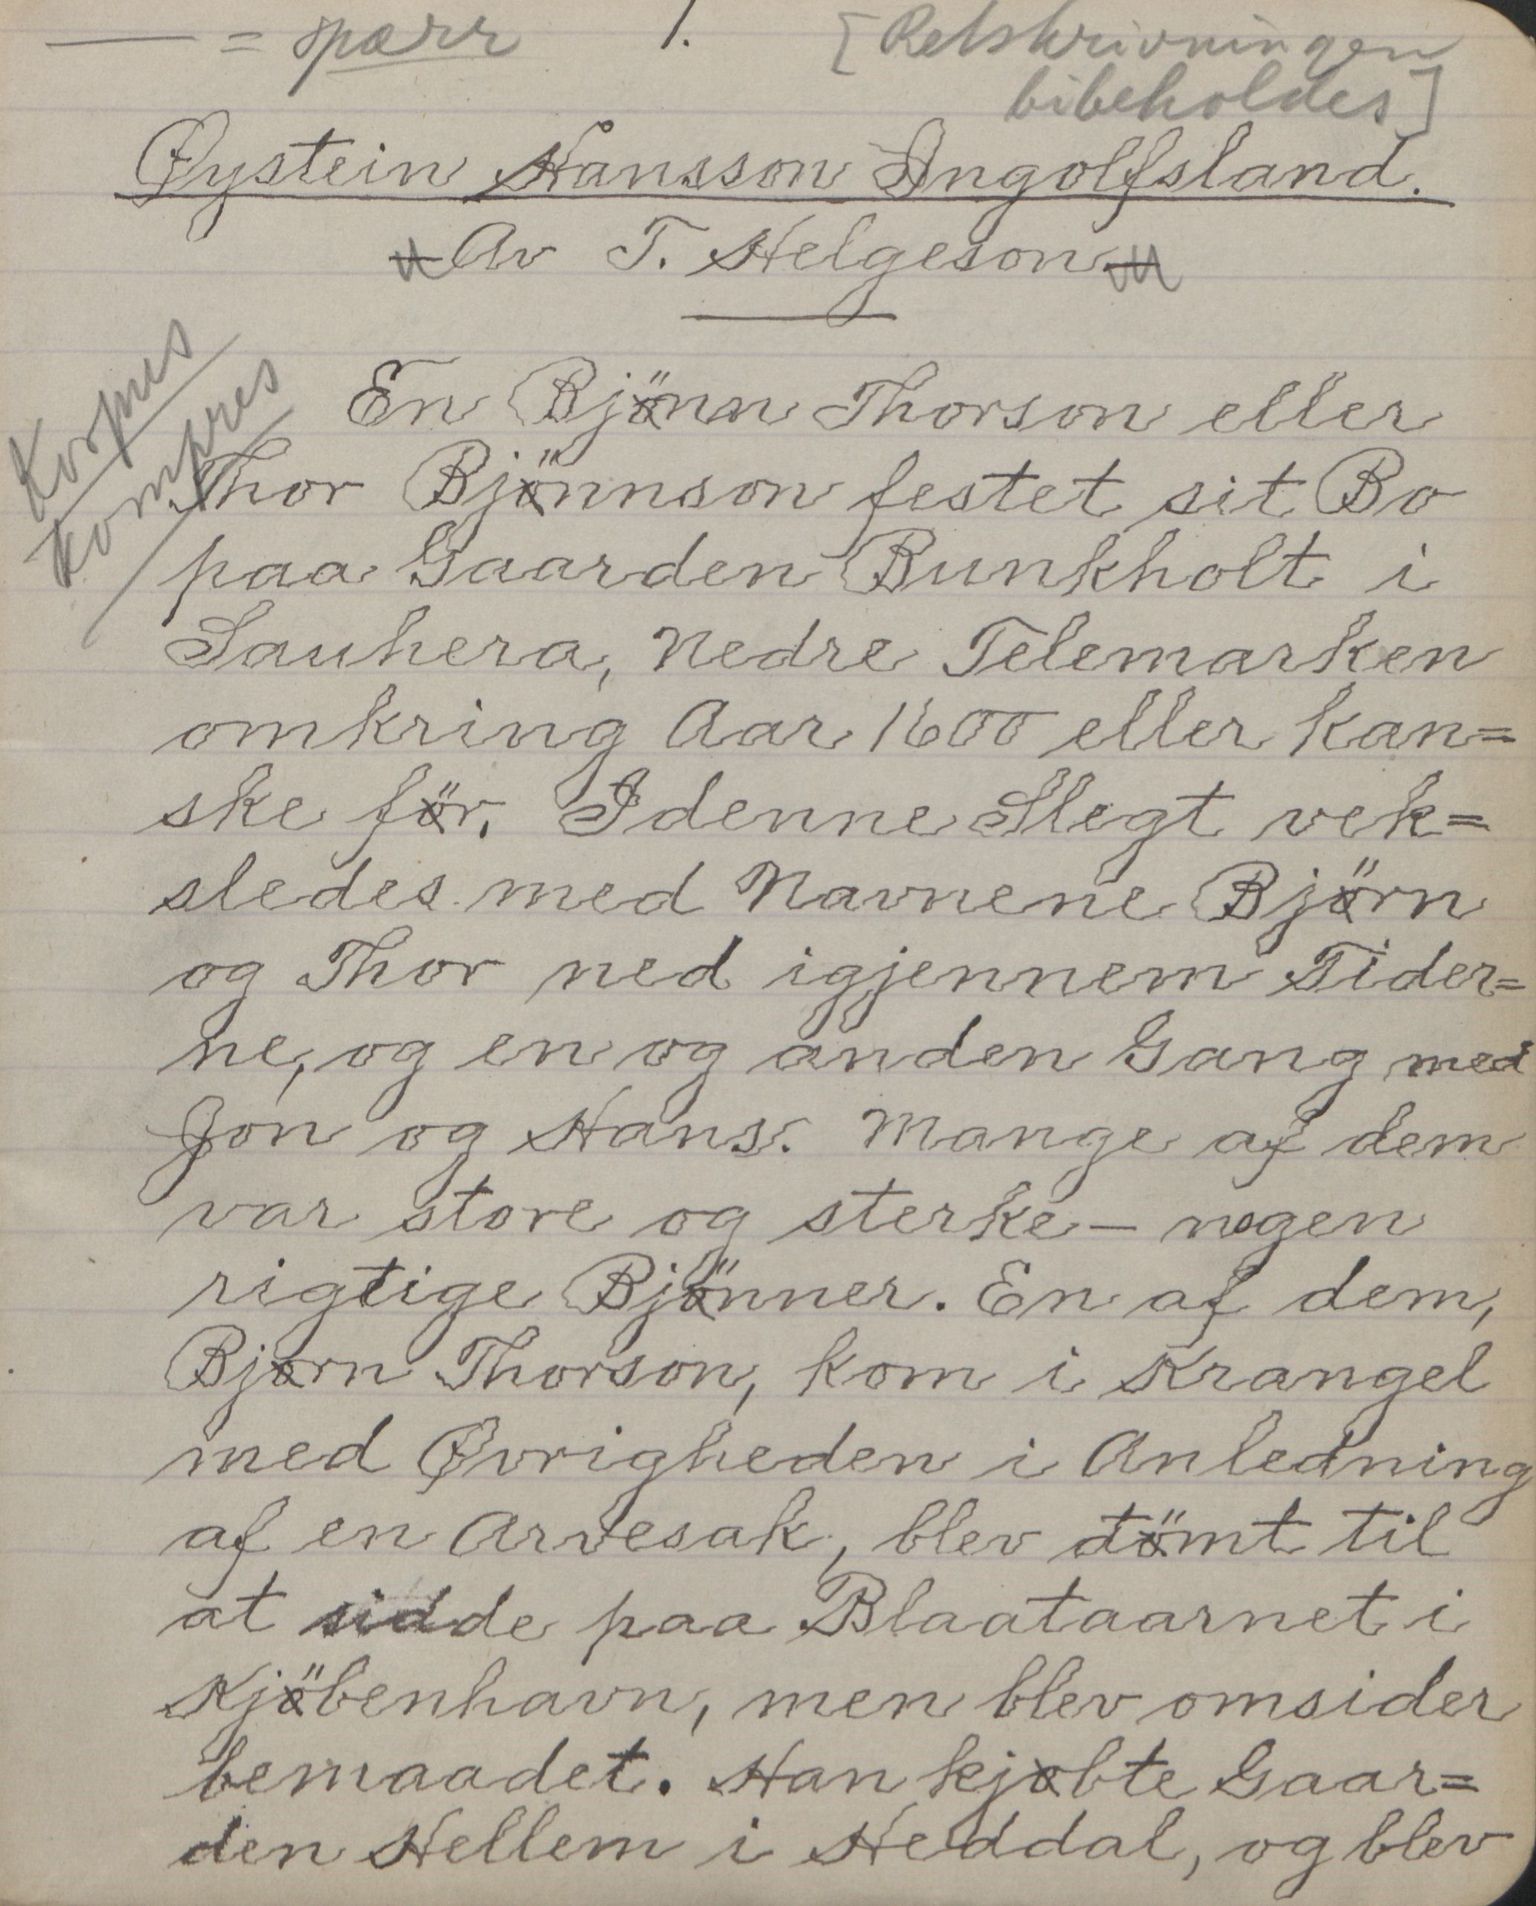 — = spærr 1. [Retskrivningen
bibeholdes]
Øystein Hansson Ingolfsland.
Av T. Helgeson
Korpus
kompres
En Bjønn Thorson eller
Thor Bjønnson festet sit Bo
paa Gaarden Bunkholt i
Sauhera, Nedre Telemarken
omkring Aar 1600 eller kan=
ske før. I denne Slegt vek=
sledes med Navnene Bjørn
og Thor ned igjennem Tider=
ne, og en og anden Gang med
Jon og Hans. Mange af dem
var store og sterke — nogen
rigtige Bjønner. En af dem,
Bjørn Thorson, kom i Krangel
med Øvrigheden i Anledning
af en Arvesak, blev dømt til
at sidde paa Blaataarnet i
Kjøbenhavn, men blev omsider
benaadet. Han kjøbte Gaar=
den Hellem i Heddal, og blev